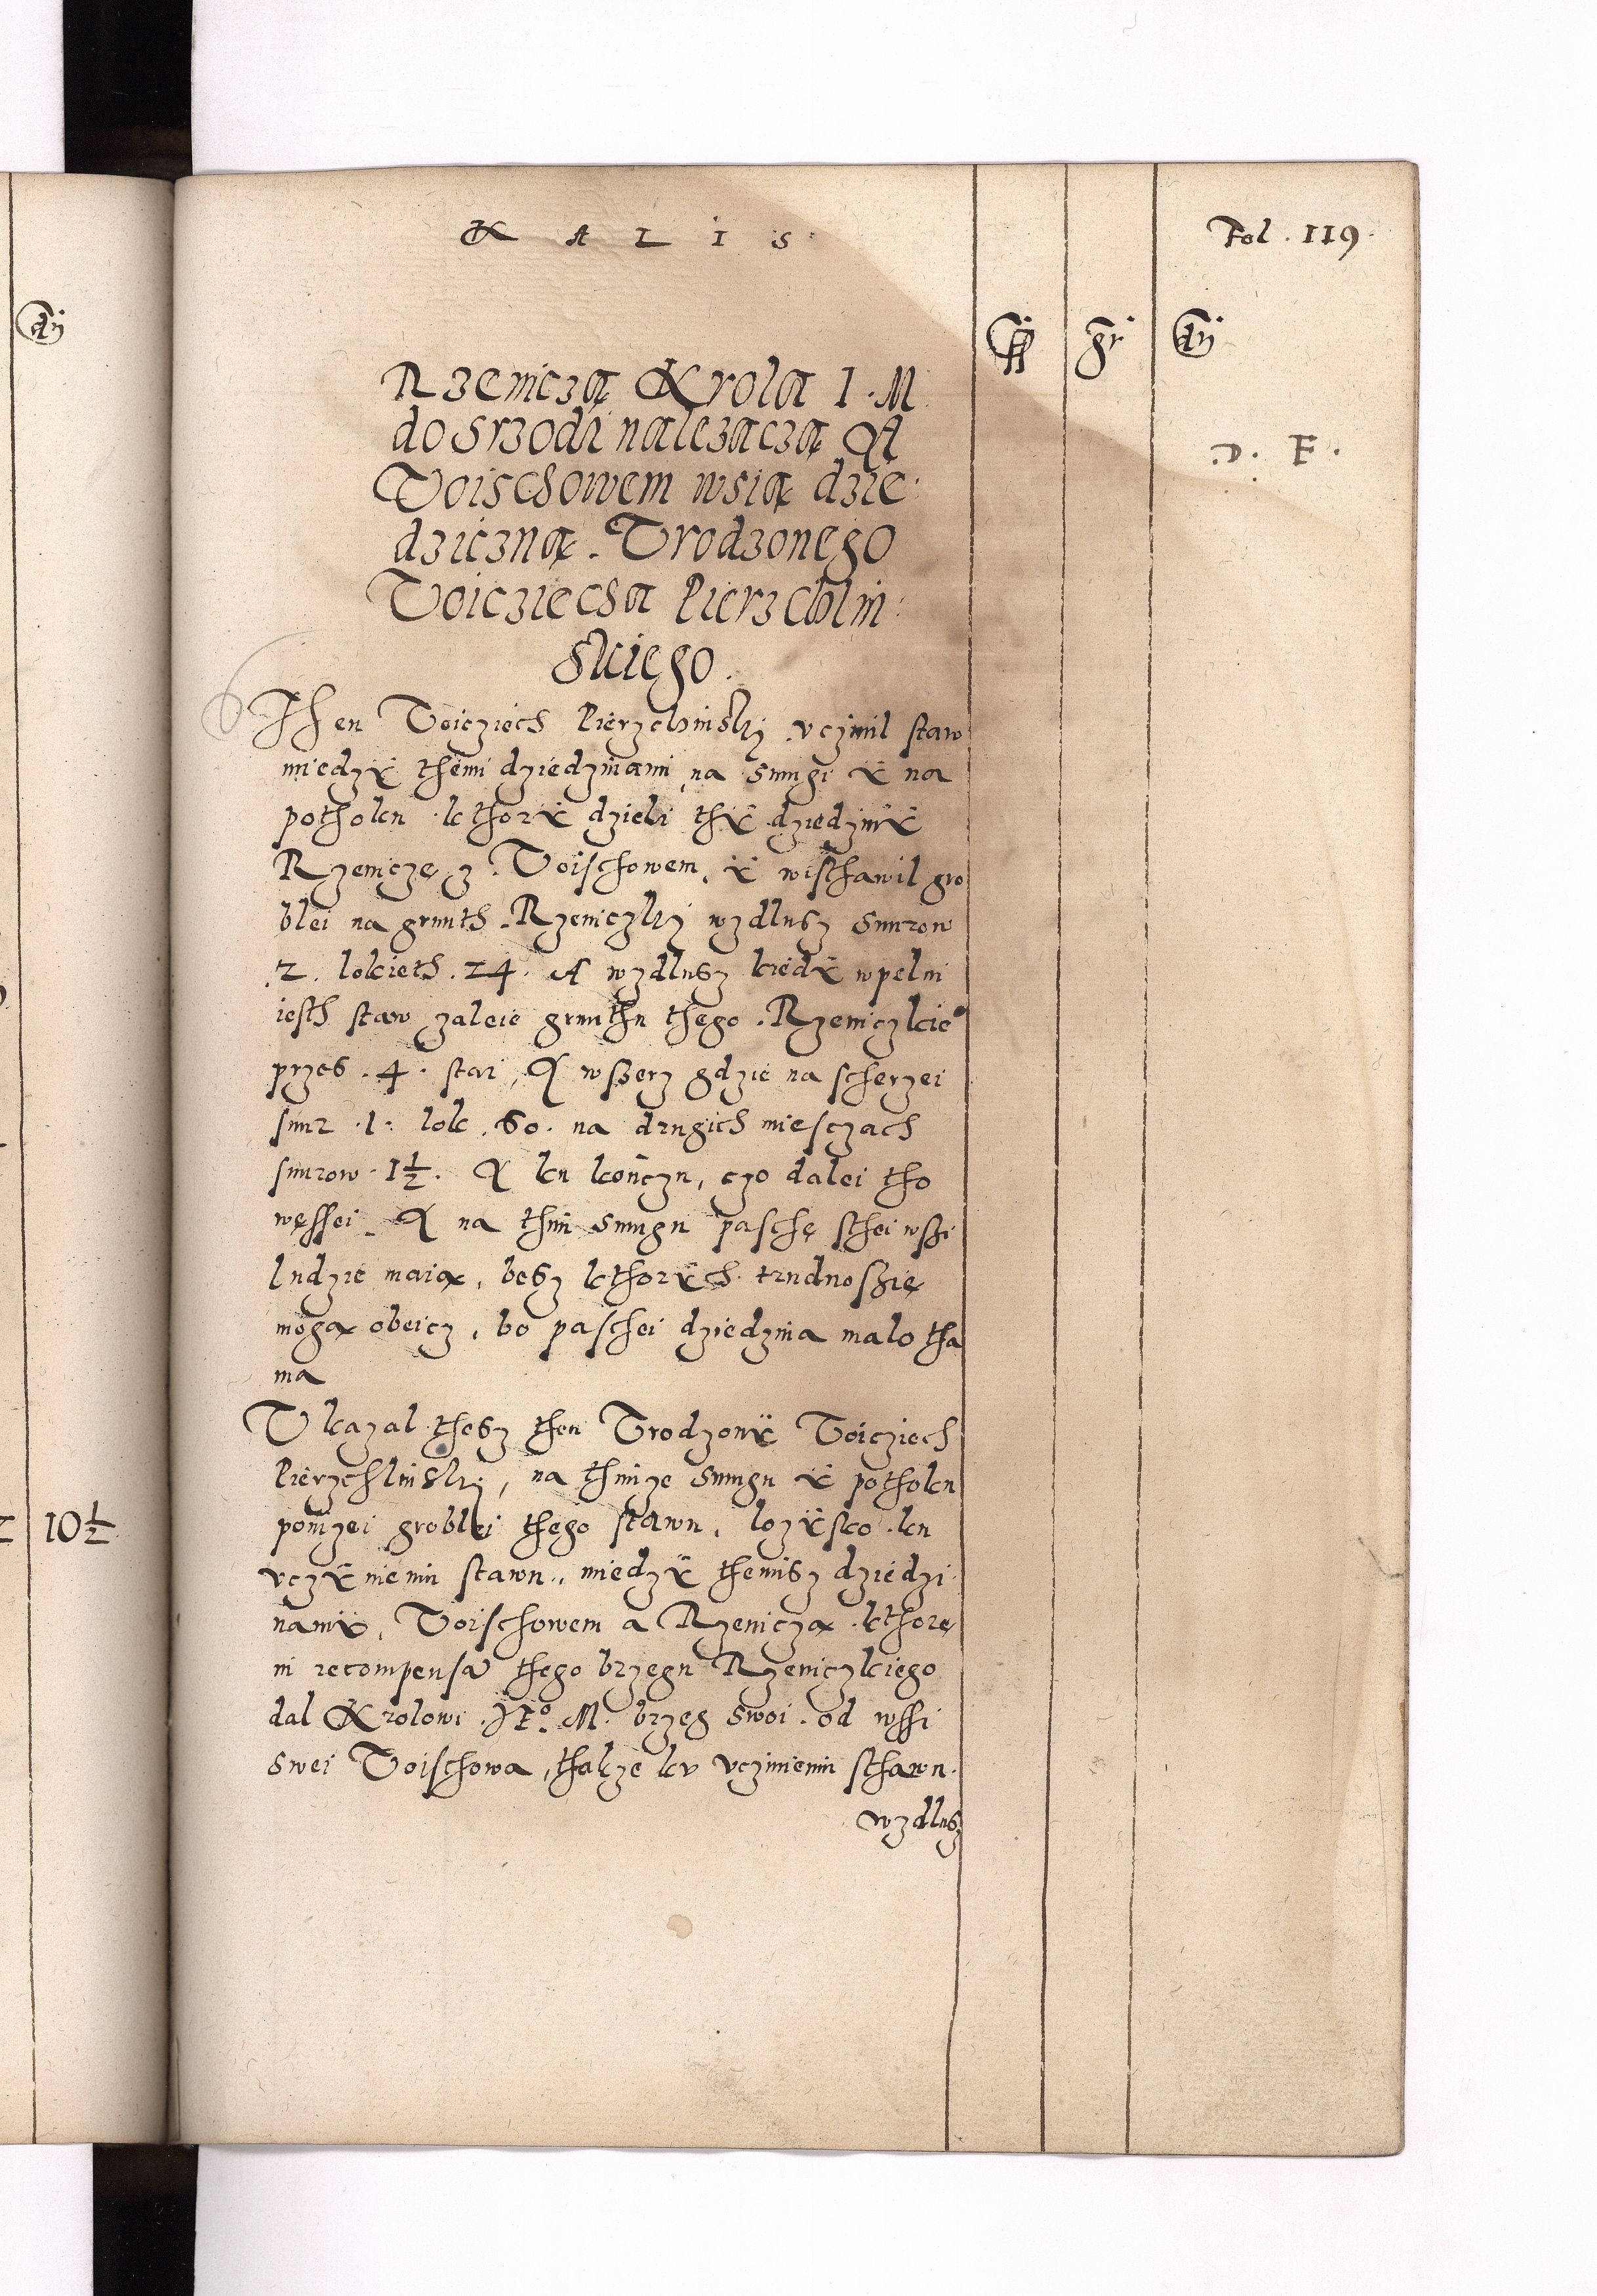 KALIS
Fol. 119
dñ
ff gr dñ
Rzeniczą Krola I. M
do Srzodi należaczą A
Voischowem wsią dzie
dziczną. Vrodzonego
Voicziecha Pierzchlin
skiego.
D. F.
Then Voicziech Pierzchlinsky vczinil staw
miedzÿ themi dziedzinami, na Snugi ÿ na
pothoku kthorÿ dzieli thÿ dziedzinÿ
Rzeniczę z Voischowem, ÿ wisthawil gro
blei na grunth Rzeniczky wzdlusz snurow
2. lokieth. 24. A wzdlusz kiedÿ wpelni
iesth staw zaleie grunthu thego Rzeniczkieº
przes. 4. stai, A wszerz gdzie na scherzei
snur. 1. lok. 60. na drugich miesczach
snurow 1½. A ku konczu, czo dalei tho
węssei. A na thim Snugu paschę sthei wszi
ludzie maią, besz kthorÿch trudno szię
mogą obeicz, bo paschei dziedzina malo tha
ma
Vkazal thesz then Vrodzonÿ Voicziech
Pierzchlinsky, na thimze Snugu ÿ pothoku
ponizei groblei thego stawu, lozÿsko ku
vczÿnieniu stawu, miedzÿ themisz dziedzi
namÿ, Voischowem a Rzeniczą kthore
in recompensa thego brzegu Rzeniczkiego
dal Krolowi Jeº. M. brzeg swoi od wssi
swei Voischowa, thakze kv vczinieniu sthawu.
wzdlusz
10½